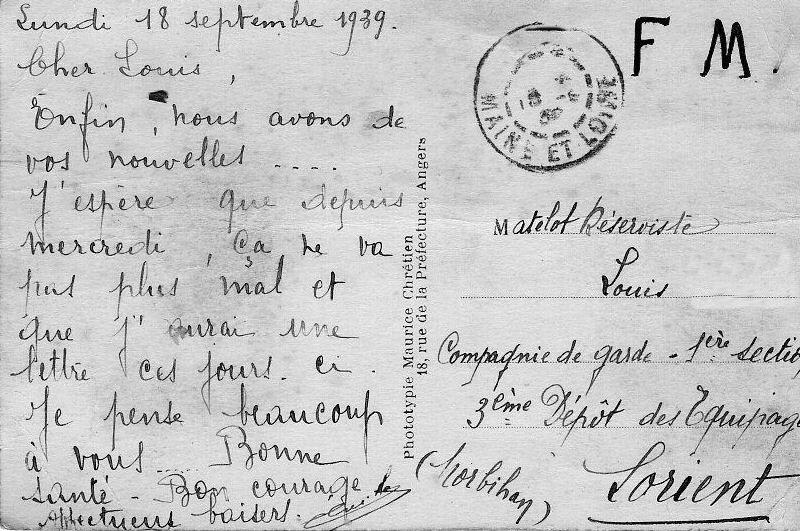 Lundi 18 septembre 1939.
Cher Louis,
Enfin, nous avons de
vos nouvelles .....
J'espère que depuis
mercredi, ça ne va
pas plus mal et
que j'aurai une
lettre ces jours-ci.
Je pense beaucoup
à vous .... Bonne
santé - Bon courage
Affectueux baisers.
Phototypie Maurice Chrétien
18, rue de la Préfecture, Angers
MAINE ET LOIRE
F M.
Matelot Réserviste
Louis
Compagnie de garde - 1ère section
3ème Dépôt des Equipage
Lorient
(Morbihan)